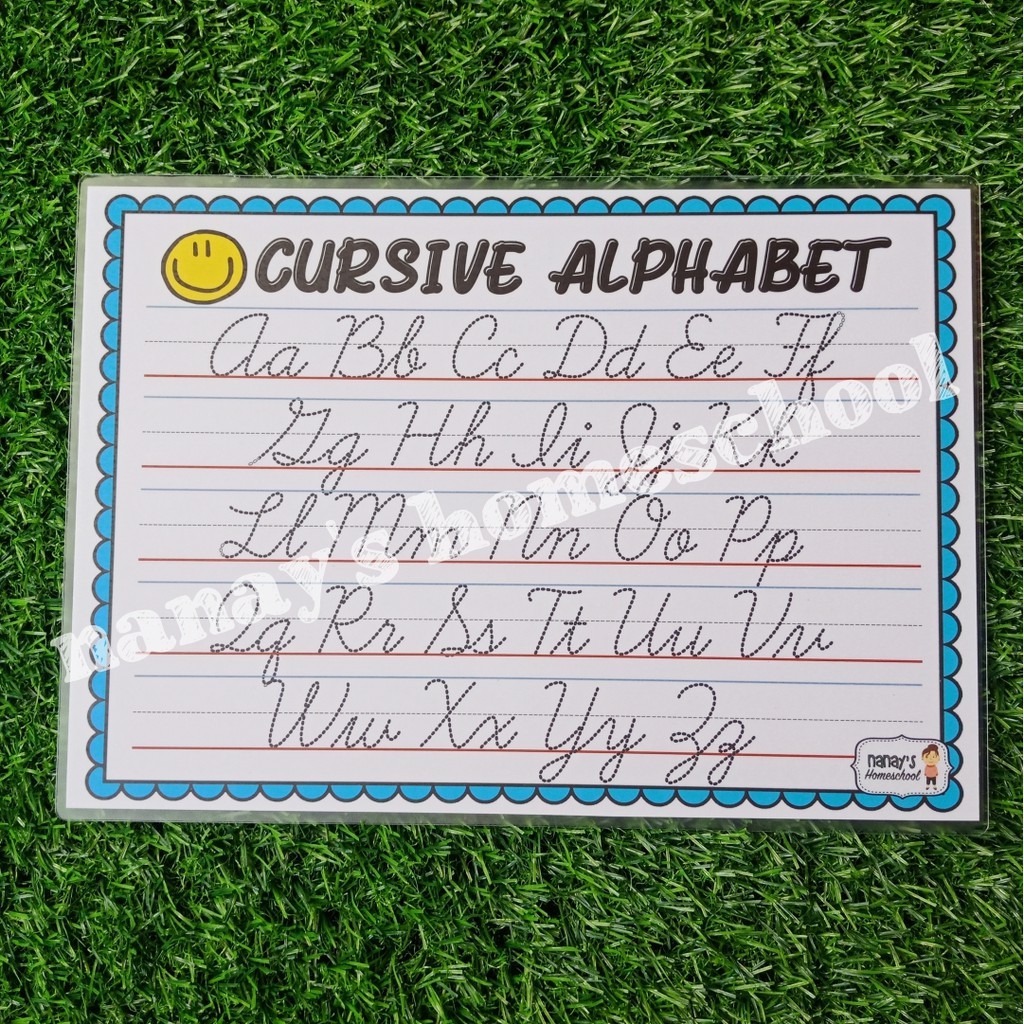 CURSIVE ALPHABET
Aa Bb Cc Dd Ee Ff
Gg Hh Ii Jj Kk
Ll Mm Nn Oo Pp
Qq Rr Ss Tt Uu Vv
Ww Xx Yy Zz
nanay's homeschool
nanay's
Homeschool